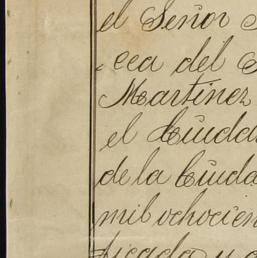 el Señor
cea del
Martinez
el Ciuda
de la Ciuda
mil ochocien
ficada y